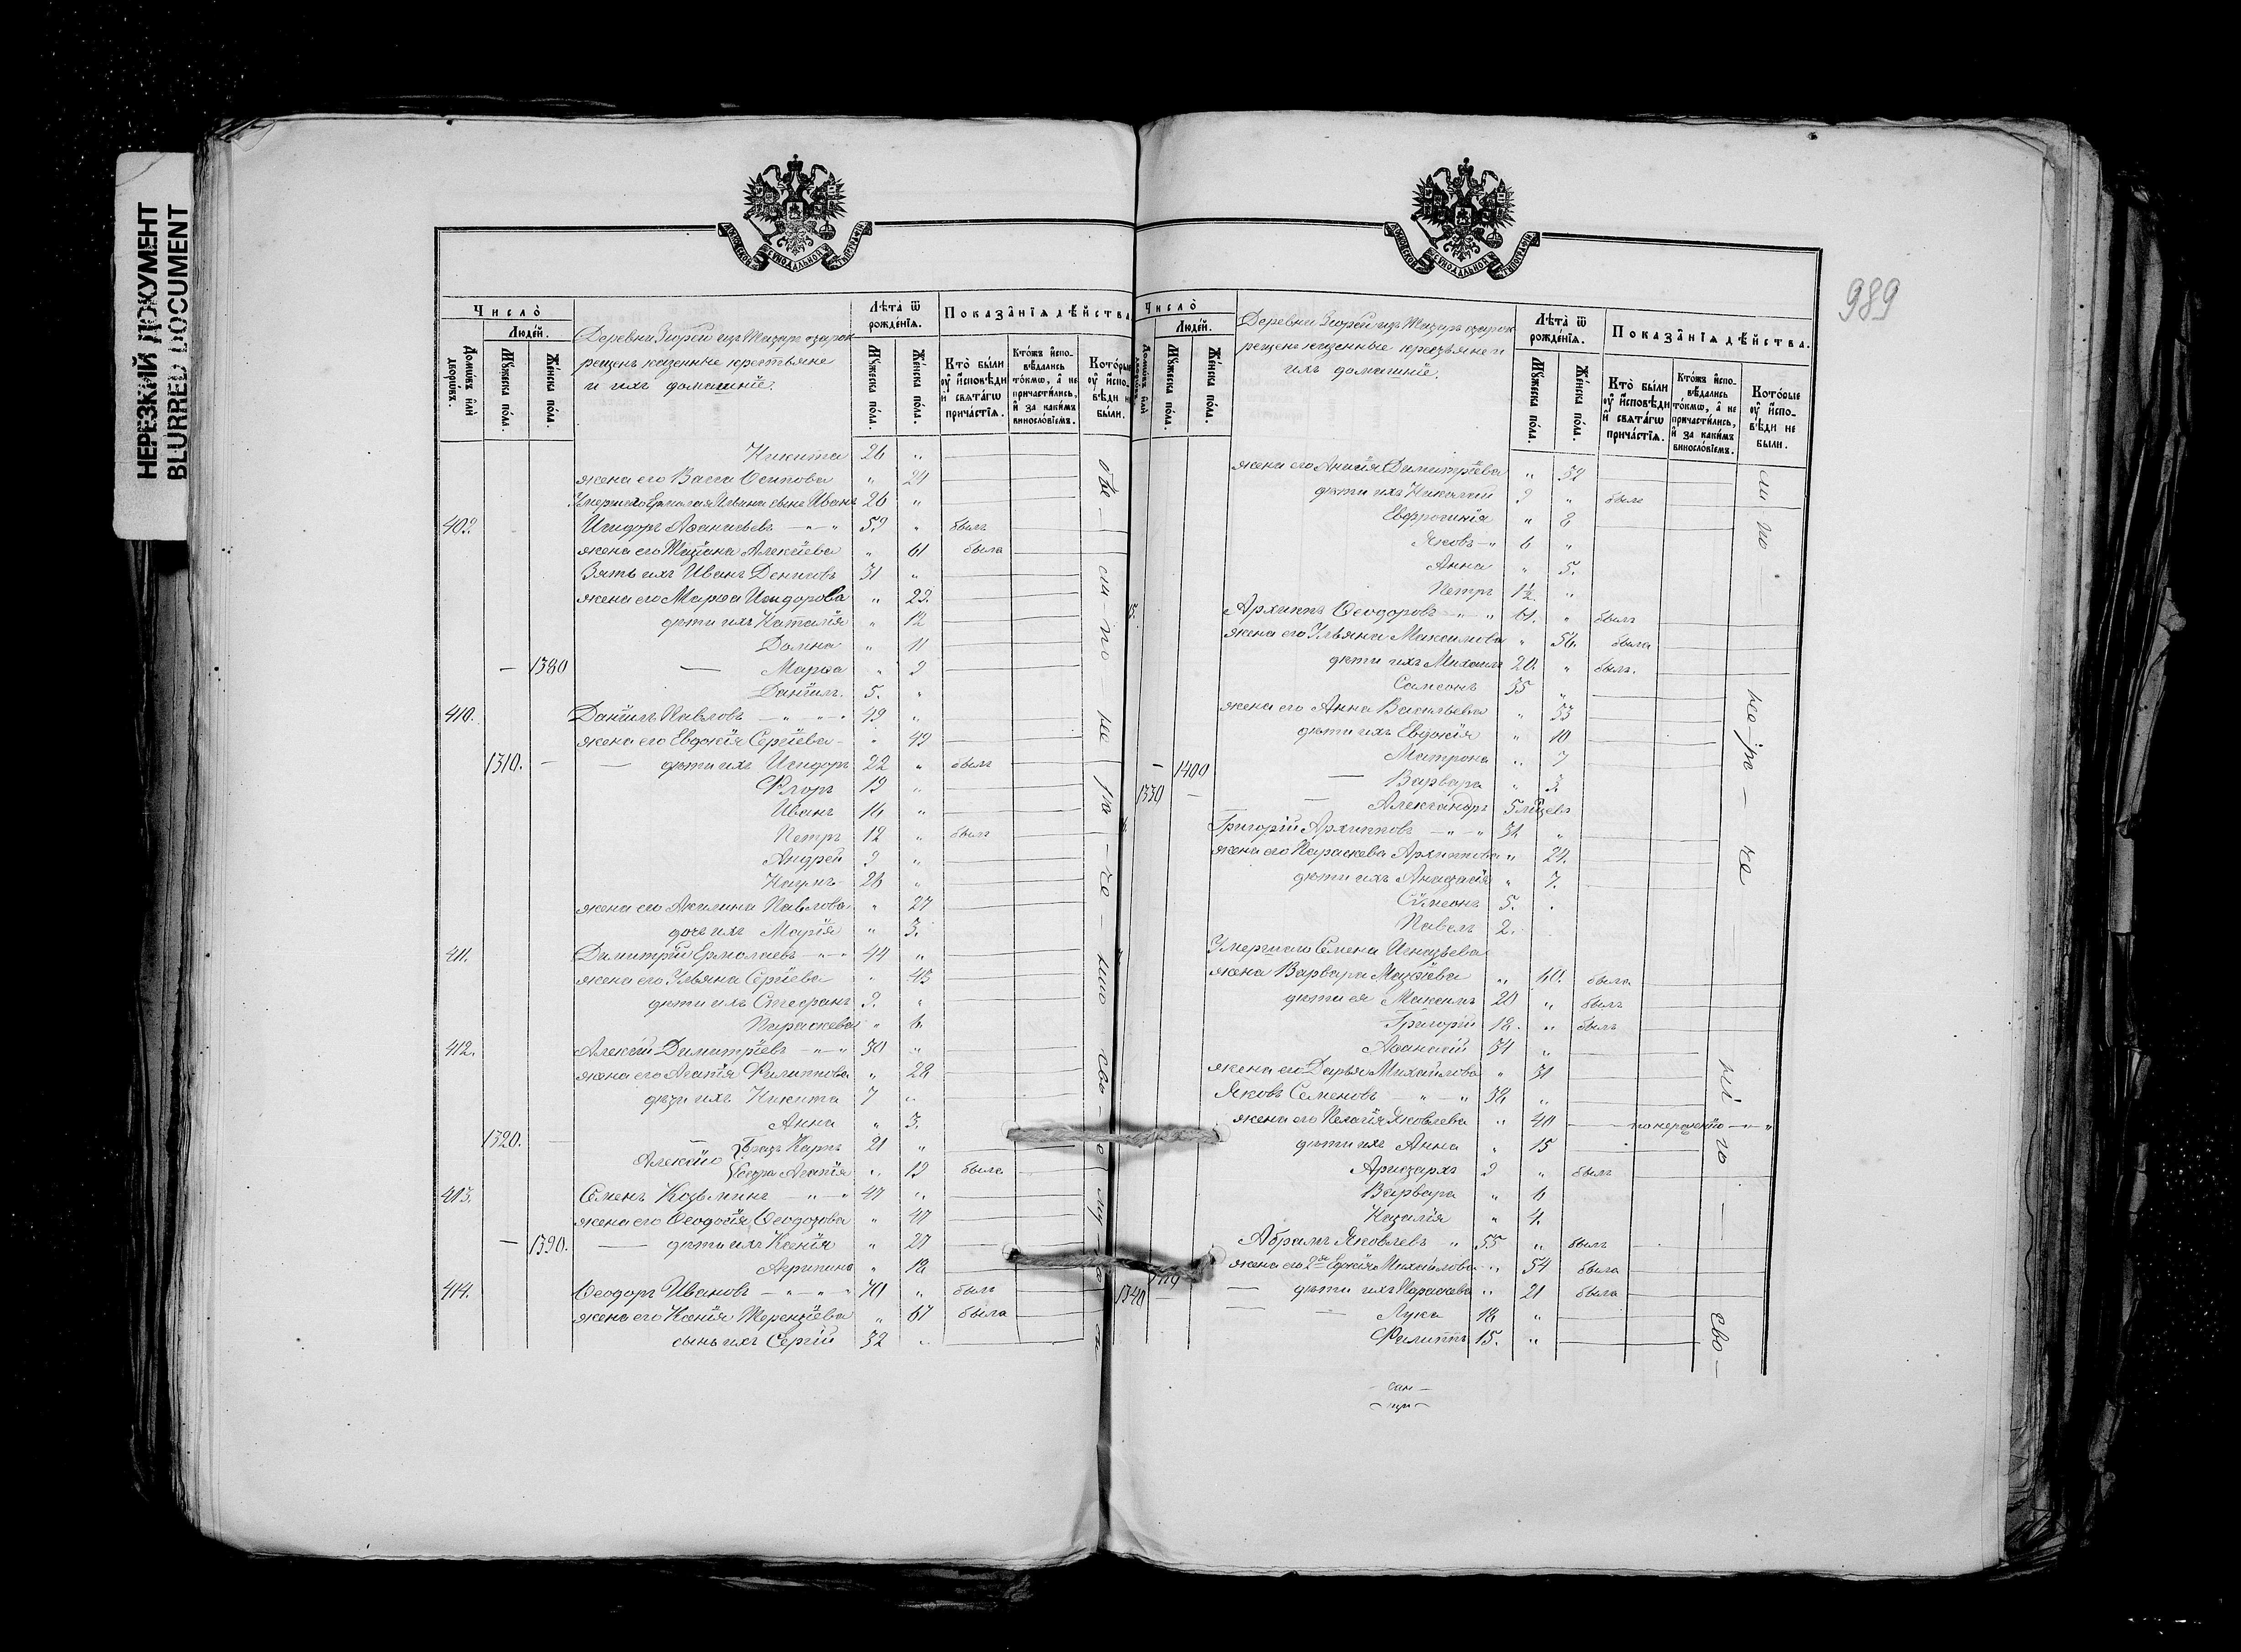 НЕРЕЗКИЙ ДОКУМЕНТ
BLURRED DOCUMENT
МОСКОВСКОЙ СѴНОДАЛЬНОЙ ТИПОГРАФІИ
Число̀
Людéй.
Домѡ́въ и҆лѝ дворѡ́въ.
Мꙋ́жеска по́ла.
Же́нска по́ла.
Деревни Зюрей изъ Татаръ старок
рещенъ казенные крестьяне
и ихъ домашніе.
Лѣта̀ ѿ рожде́нїѧ.
Мꙋ́жеска по́ла.
Же́нска по́ла.
Показа̂нїѧ дѣ́йства
Кто̀ бы́ли ᲂу҆ и҆́сповѣди и҆ свѧта́гѡ прича́стїѧ.
Кто́жъ и҆спо-вѣ́дались то́кмѡ, а҆ не причасти́лись, и҆ за каки́мъ винослóвїемъ.
Кото́рые ᲂу҆ и҆́спо-вѣди не бы́ли.
Никита 26 "
жена его Васса Осипова " 21
Умершаго Ермолая Ильина сынъ Иванъ 26 "
409. Исидоръ Аѳанасьевъ — " — " 59 " былъ
жена его Татіана Алексіева " 61 была
Зять ихъ Иванъ Денисовъ 31 "
жена его Марѳа Исидорова " 29.
дѣти ихъ Наталія " 12
Домна " 11
— 1380 — Марѳа " 9
Даніилъ. 5. "
410. Даніилъ Павловъ — " — " 49 "
жена его Евдокія Сергіева - " 49
1310. — — дѣти ихъ Исидоръ 22 " былъ
Флоръ 19 "
Иванъ 16 "
Петръ 12 " былъ
Андрей 9 "
Наумъ 26 "
жена его Акилина Павлова " 27
дочь ихъ Марія " 3.
411. Димитрій Ермолаевъ — " — " 44 "
жена его Ульяна Сергіева " 43
дѣти ихъ Стефанъ 9. "
Параскева " 6
412. Алексій Димитріевъ — " — " 30 "
жена его Агапія Филиппова " 28
дѣти ихъ Никита 7 "
Анна " 3.
1320. — — Алексію братъ Карпъ 21 "
сестра Агапія " 19 была
413. Семенъ Козьминъ — " — " 47 "
жена его Ѳеодосія Ѳеодотова " 47
— 1390. — дѣти ихъ Ксенія " 27
Агрипина " 18
414. Ѳеодоръ Ивановъ — " — " 70 " былъ
жена его Ксенія Терентіева " 67 была
сынъ ихъ Сергій 32 "
989
МОСКОВСКОЙ СѴНОДАЛЬНОЙ ТИПОГРАФІИ
Число̀
Людéй.
Домѡ́въ и҆лѝ
Мꙋ́жеска по́ла.
Же́нска по́ла.
Деревни Зюрей изъ Татаръ старок
рещенъ казенные крестьяне и
ихъ домашніе.
Лѣта̀ ѿ рожде́нїѧ.
Мꙋ́жеска по́ла.
Же́нска по́ла.
Показа̂нїѧ дѣ́йства.
Кто̀ бы́ли ᲂу҆ и҆́сповѣди и҆ свѧта́гѡ прича́стїѧ.
Кто́жъ и҆спо-вѣ́дались то́кмѡ, а҆ не причасти́лись, и҆ за каки́мъ винослóвїемъ.
Кото́рые ᲂу҆ и҆́спо-вѣди не бы́ли.
жена его Анисія Димитріева " 32
дѣти ихъ Николай 9 " былъ
Евфросинія " 8
Яковъ " 6 "
Анна " 5.
Петръ 1½ "
Архиппъ Ѳеодоровъ — " " 61. " былъ
жена его Ульяна Максимова " 56. была
дѣти ихъ Михаилъ 20. " былъ.
Самсонъ 35 "
жена его Анна Васильева " 33
дѣти ихъ Евдокія " 10
Матрона " 7
— 1400 — Варвара " 3.
1330 — — Александръ 5 мѣсяцевъ
Григорій Архипповъ — " — " 31 "
жена его Параскева Архипова " 24.
дѣти ихъ Анастасія " 7.
Симеонъ 5. "
Павелъ 2.
Умершаго Семена Игнатьева
жена Варвара Матѳіева " 60. была
дѣти ея Максимъ 20 " былъ
Григорій 18. " былъ
Аѳанасій 34 "
жена его Дарья Михайлова " 31
Яковъ Семеновъ — " — " 38 "
жена его Пелагія Яковлева " 40 — по нерадѣнію — " — "
дѣти ихъ Анна " 15
Аристархъ 9 " былъ
Варвара " 6
Наталія " 4.
Абрамъ Яковлевъ " 55 " былъ
жена его 2я Евдокія Михайлова " 54 была
1340 — дѣти ихъ Параскева " 21 была
Лука 18 "
Филиппъ 15. "